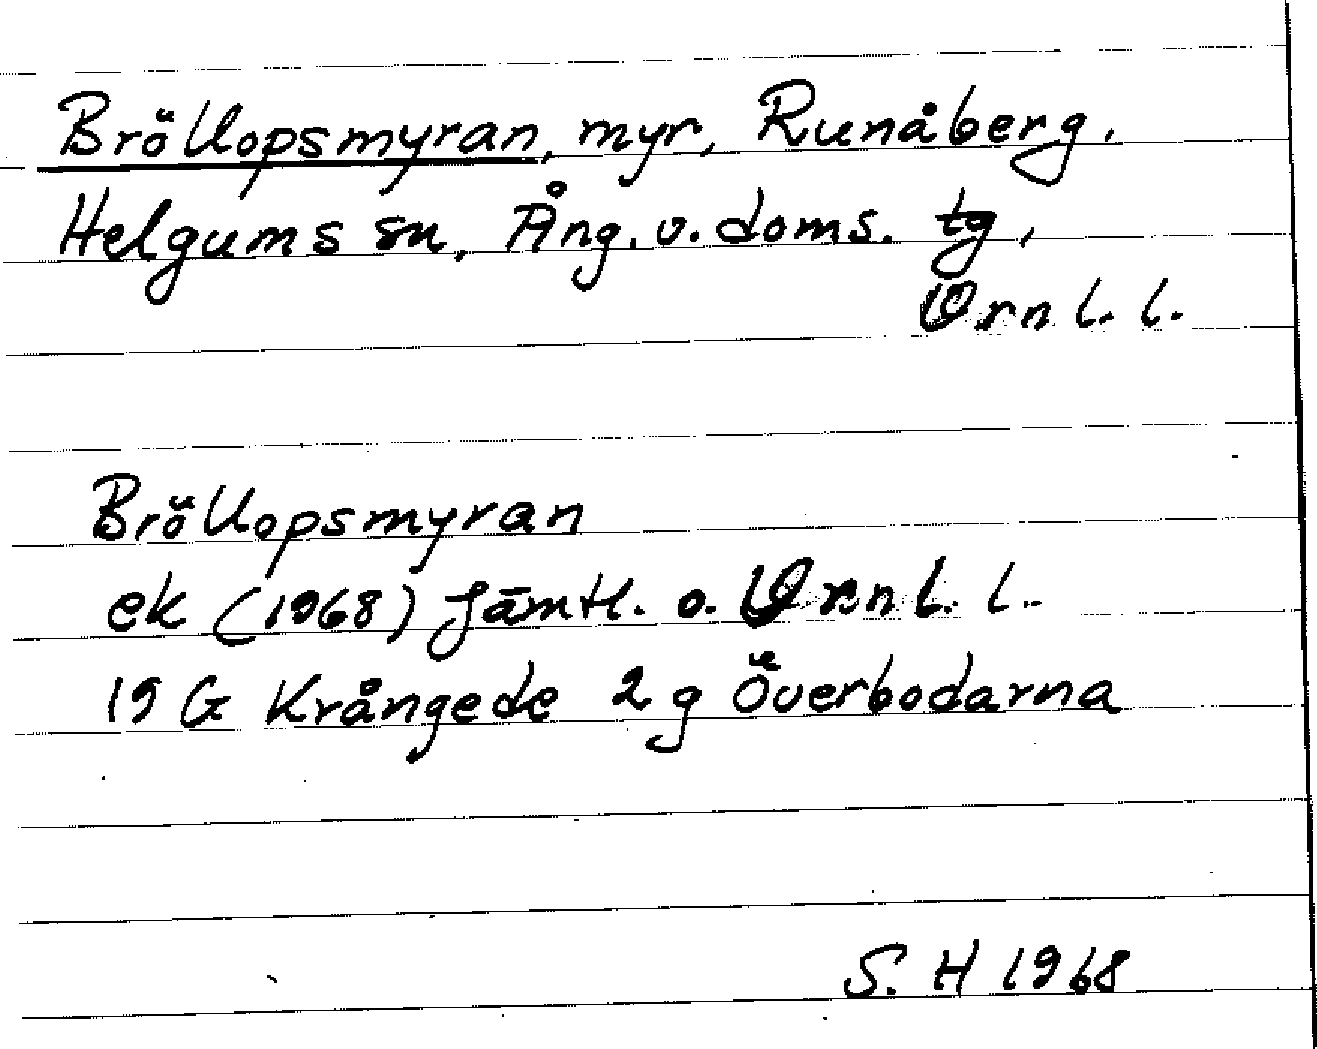 Bröllopsmyran, myr, Runåberg,
Helgums sn, Ång. v. doms. tg,
Vrnl. l.
Bröllopsmyran
ek (1968) Jämtl. o. Vrnl. l.
19 G Krångede 2 g Överbodarna
S. H 1968